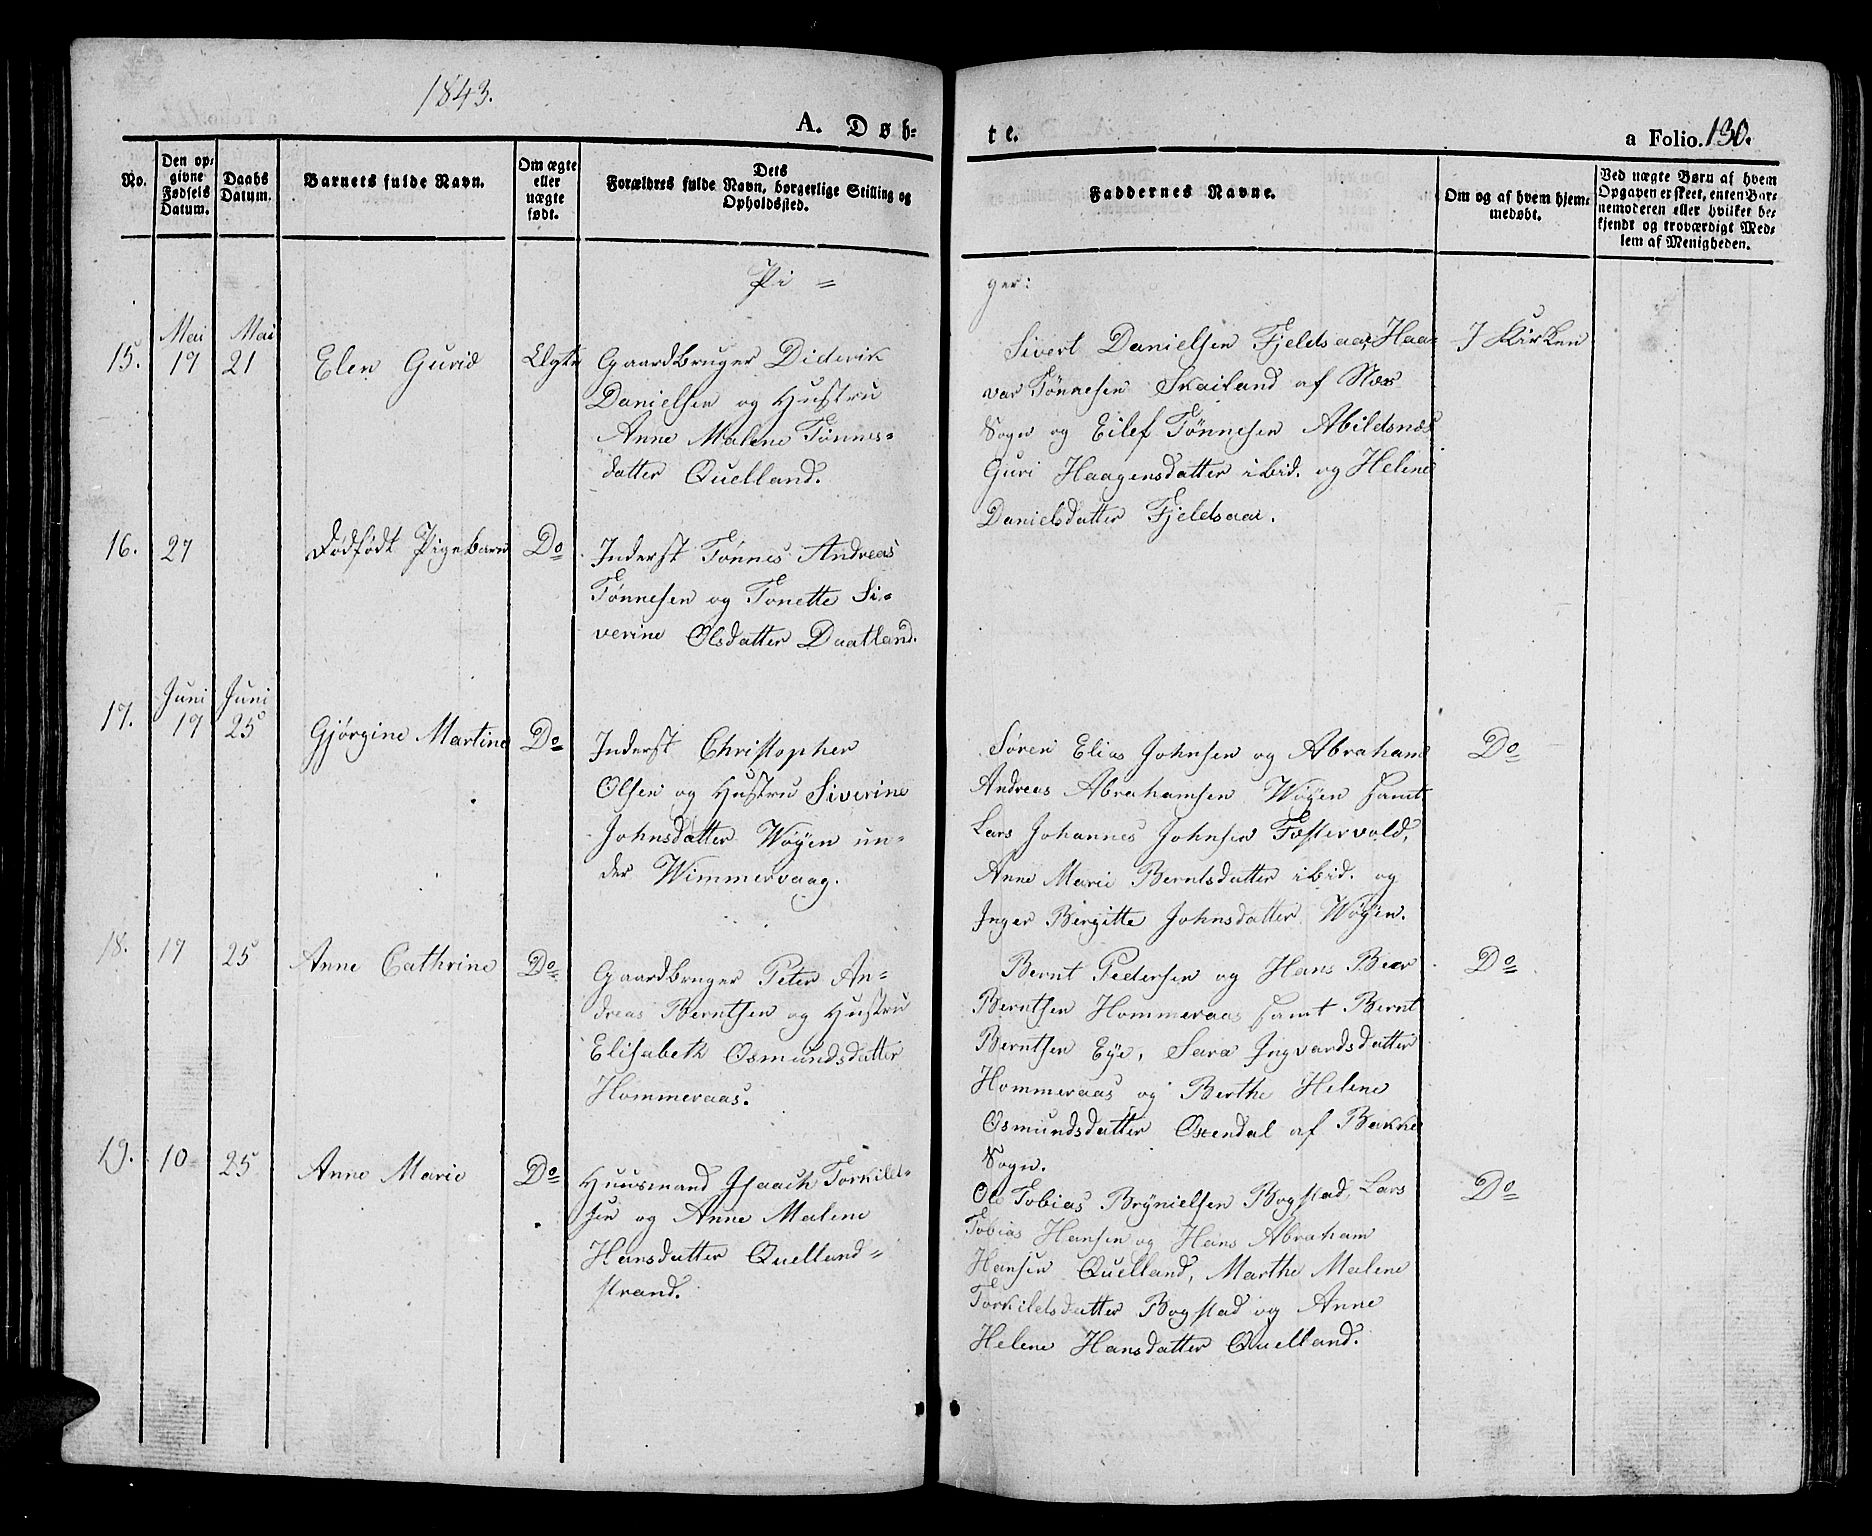 1843.
A. Døb-
te.
a Folio. 130.
No.
Den op-
givne
Fødsels
Datum.
Daabs
Datum.
Barnets fulde Navn.
Om ægte
eller
uægte
født.
Dets
Forældres fulde Navn, borgerlige Stilling og
Opholdssted.
Faddernes Navne.
Om og af hvem hjem-
medøbt.
Ved uægte Børn af hvem
Opgaven er skeet, enten Bar-
nemoderen eller hvilket be-
kjendt og troværdigt Med-
lem af Menigheden.
Pi =
ger:
15.
Mai
19
Mai
21
Elen Gurid
Ægte
Gaardbruger Diderik
Danielsen og Hustru
Anne Malene Tønnes-
datter Quelland.
Sivert Danielsen Fjeldsaa, Haa-
var Tønnesen Skailand af Næs
Sogn og Eilef Tønnesen Abildsnæs
Guri Haagensdatter ibid. og Helene
Danielsdatter Fjeldsaa.
I Kirken
16.
27
Dødfødt Pigebarn
Do
Inderst Tønnes Andreas
Tønnesen og Tonette Si-
verine Olsdatter Daatland.
17.
Juni
19
Juni
25
Gjørgine Martine
Do
Inderst Christopher
Olsen og Hustru Siverine
Johnsdatter Wøyen un-
der Wimmervaag.
Søren Elias Johnsen og Abraham
Andreas Abrahamsen Wøyen samt
Lars Johannes Johnsen Fæstervold,
Anne Marie Berntsdatter ibid. og
Inger Birgitte Johnsdatter Wøyen.
Do
18.
17
25
Anne Cathrine
Do
Gaardbruger Peter An-
dreas Berntsen og Hustru
Elisabeth Osmundsdatter
Hommeraas.
Bernt Pedersen og Hans Beer
Berntsen Hommeraas samt Bernt
Berntsen Eye, Sara Ingvardsdatter
Hommeraas og Berthe Helene
Osmundsdatter Oxendal af Bakke
Sogn.
Do
19.
10
25
Anne Marie
Do
Huusmand Isaach Torkild-
sen og Anne Malene
Hansdatter Quelland-
strand.
Ole Tobias Brynielsen Bogstad, Lars
Tobias Hansen og Hans Abraham
Hansen Quelland, Marthe Malene
Torkildsdatter Bogstad og Anne
Helene Hansdatter Quelland.
Do